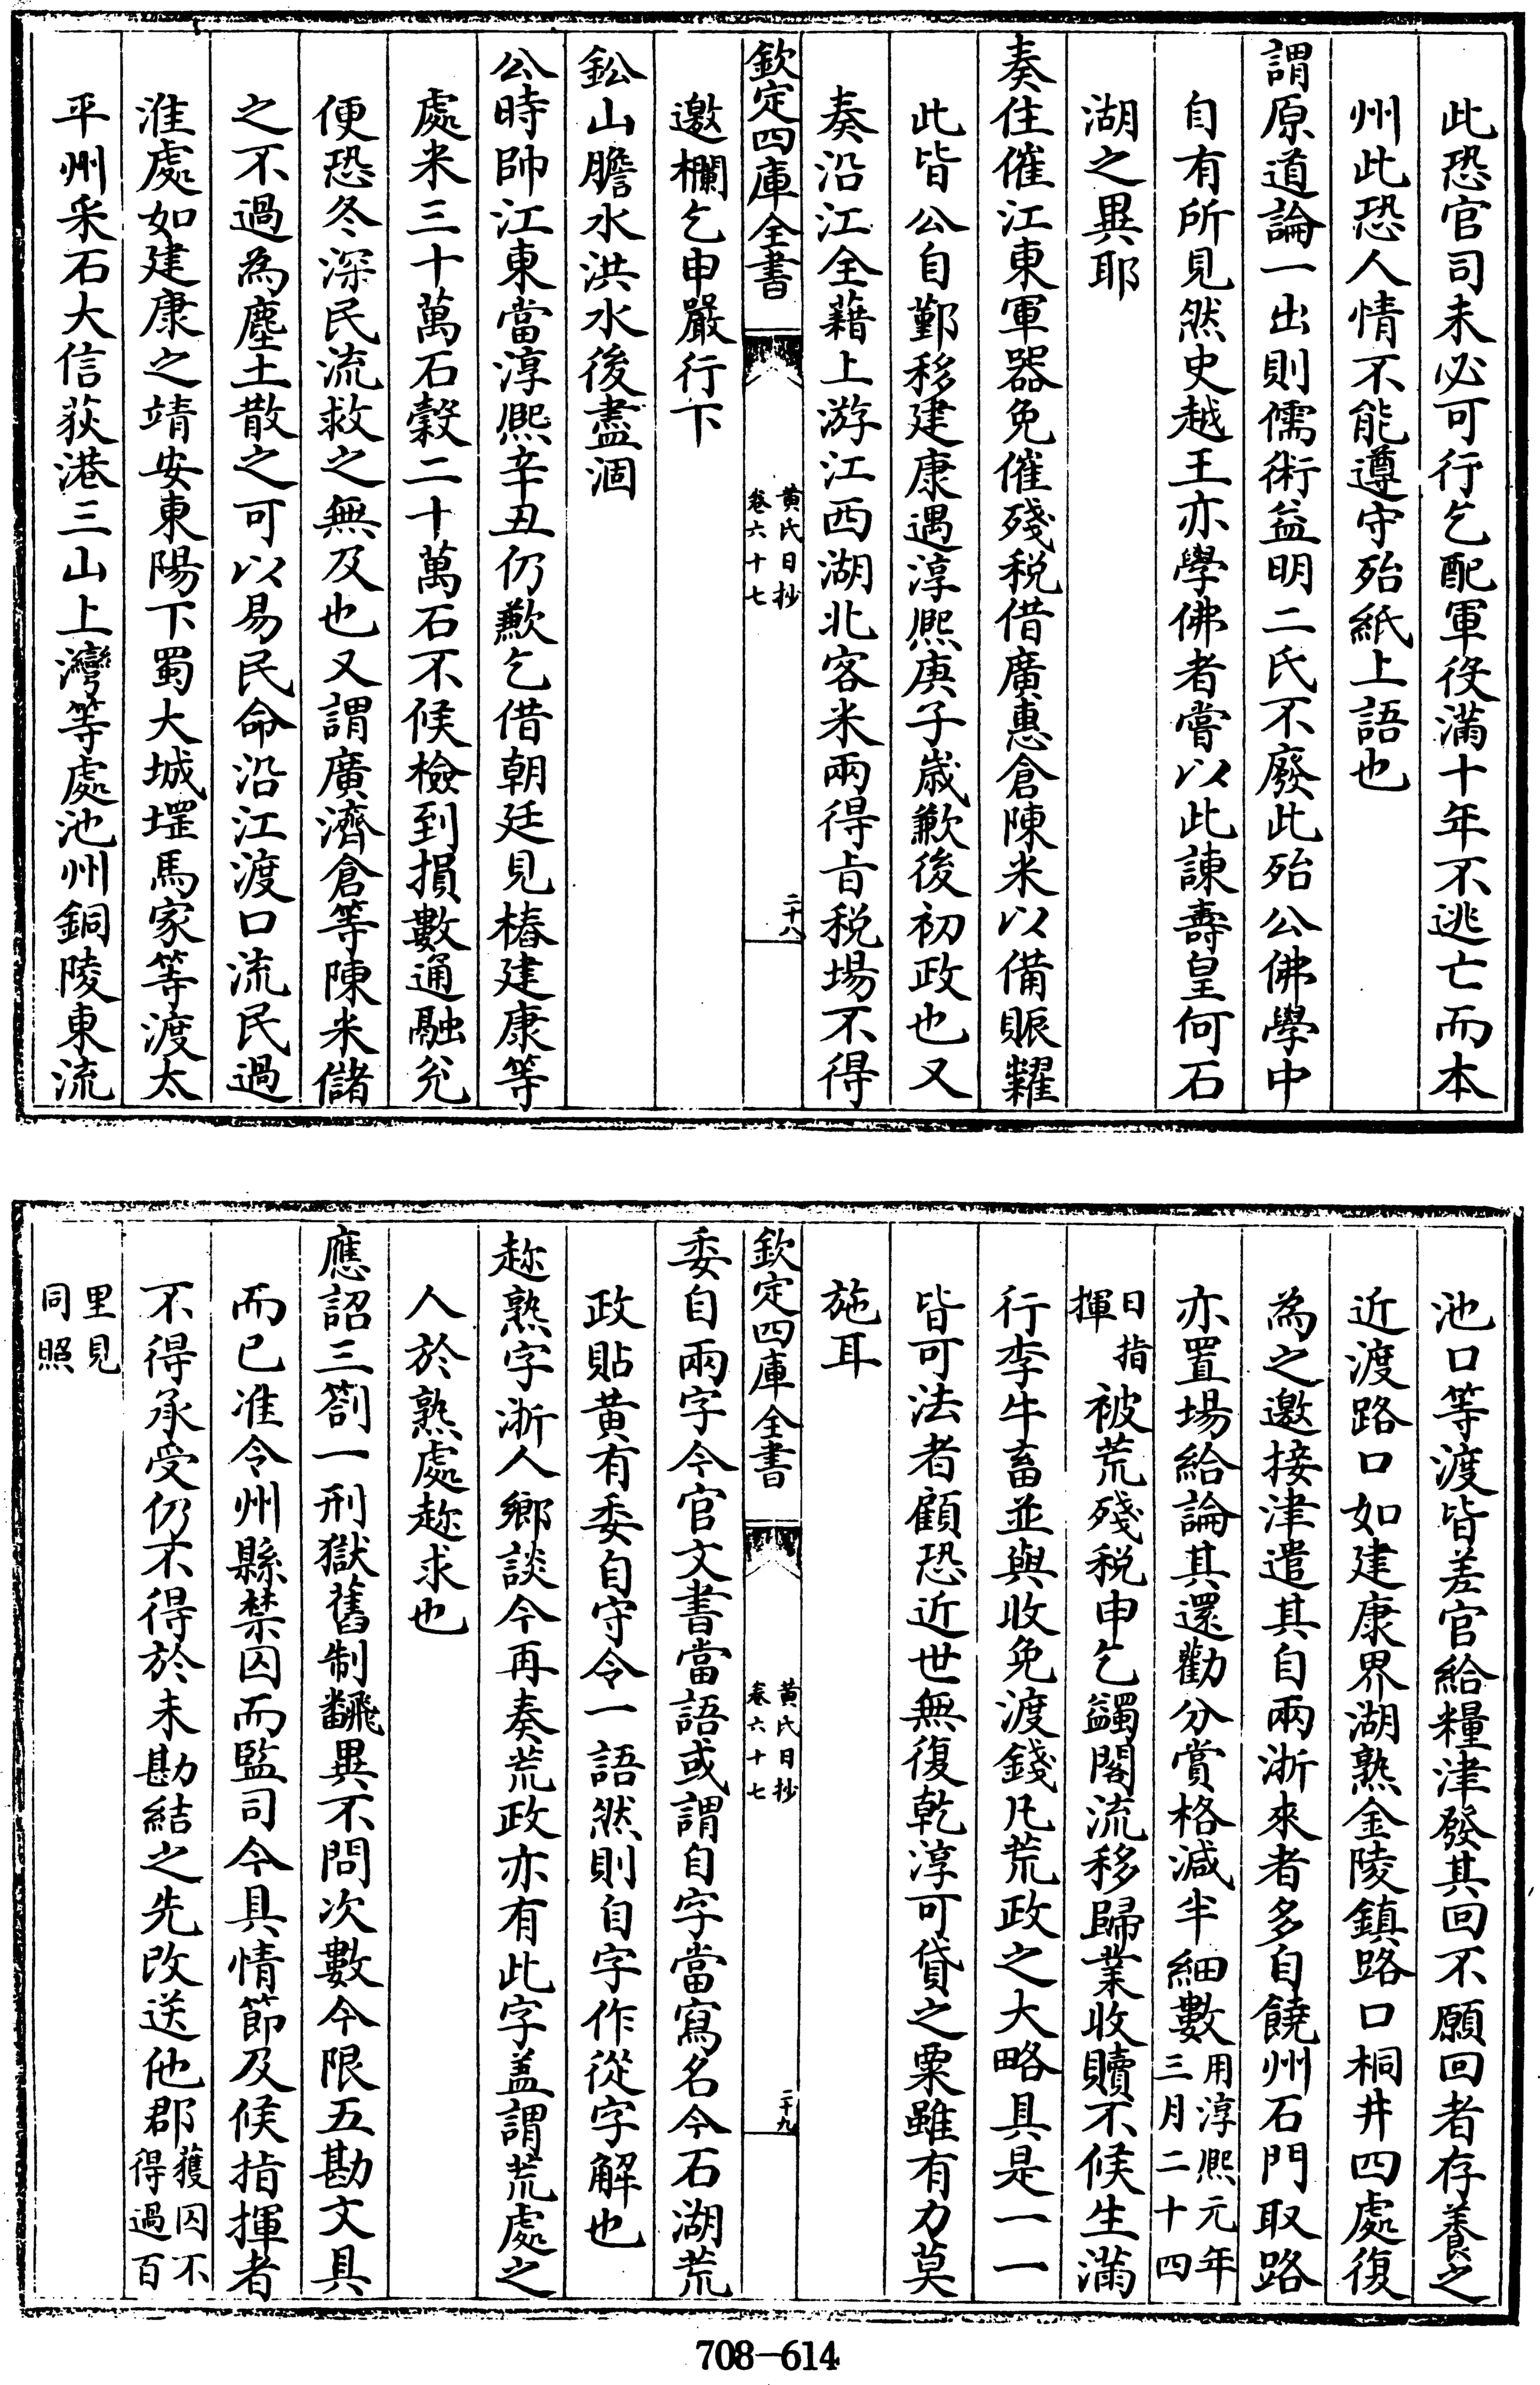 此恐官司未必可行乞配軍役滿十年不逃亡而本
州此恐人情不能遵守殆紙上語也
謂原道論一出則儒術益明二氏不廢此殆公佛學中
自有所見然史越王亦學佛者嘗以此諫壽皇何石
湖之異耶
奏住催江東軍器免催殘税借廣惠倉陳米以備賑糶
此皆公自鄞移建康遇淳熙庚子歲歉後初政也又
奏沿江全藉上游江西湖北客米兩得旨税場不得
欽定四庫全書
黄氏日抄
卷六十七
二十八
邀欄乞申嚴行下
鈆山膽水洪水後盡涸
公時帥江東當淳熙辛丑仍歉乞借朝廷見樁建康等
處米三十萬石穀二十萬石不候檢到損數通融兊
便恐冬深民流救之無及也又謂廣濟倉等陳米儲
之不過為塵土散之可以易民命沿江渡口流民過
淮處如建康之靖安東陽下蜀大城堽馬家等渡太
平州采石大信荻港三山上灣等處池州銅陵東流
池口等渡皆差官給糧津發其回不願回者存養之
近渡路口如建康界湖熟金陵鎮路口桐井四處復
為之邀接津遣其自兩浙來者多自饒州石門取路
亦置場給論其還勸分賞格減半細數
用淳熙元年
三月二十四
日指
揮
被荒殘税申乞蠲閣流移歸業收贖不候生滿
行李牛畜並與收免渡錢凡荒政之大略具是一一
皆可法者顧恐近世無復乾淳可貸之粟雖有力莫
施耳
欽定四庫全書
黄氏日抄
卷六十七
二十九
委自兩字今官文書當語或謂自字當寫名今石湖荒
政貼黄有委自守令一語然則自字作從字解也
趂熟字浙人鄉談今再奏荒政亦有此字盖謂荒處之
人於熟處趂求也
應詔三劄一刑獄舊制飜異不問次數今限五勘文具
而已准令州縣禁囚而監司今具情節及候指揮者
不得承受仍不得於未勘結之先改送他郡
獲囚不
得過百
里見
同照
708-614